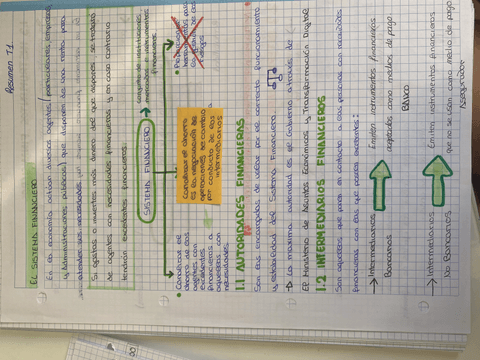 Resumen T1
EL SISTEMA FINANCIERO
En la economía actúan diversos agentes (particulares, empresas,
y Administraciones públicas) que disponen de una renta para
sus necesidades
Si gastas o inviertes más dinero del que dispones se trataría
de agentes con necesidades financieras y en caso contrario
tendrían excedentes financieros.
SISTEMA FINANCIERO → conjunto de instituciones,
mercados e instrumentos
financieros
• Canalizar el
dinero de los
agentes con
excedentes
financieros a
aquellos con
necesidades
Canalizar el ahorro
es la negociación de
operaciones de cambio
por conducto de
intermediarios
• Proporcionar
herramientas para
la gestión de los
riesgos
1.1 AUTORIDADES FINANCIERAS
Son las encargadas de velar por el correcto funcionamiento
y estabilidad del Sistema Financiero
→ La máxima autoridad es el Gobierno a través de
el Ministerio de Asuntos Económicos y Transformación Digital
1.2 INTERMEDIARIOS FINANCIEROS
Son aquellos que ponen en contacto a las personas con necesidades
financieras con las que poseen excedentes:
→ Intermediarios
Bancarios
Emiten instrumentos financieros
aceptados como medios de pago
BANCO
→ Intermediarios
No Bancarios
Emiten instrumentos financieros
que no se usan como medio de pago
Asegurador